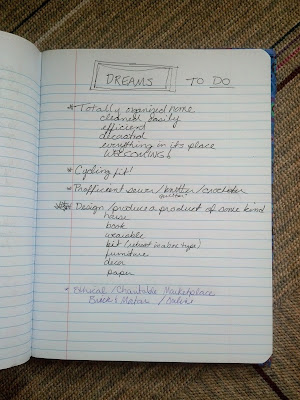 DREAMS TO DO
* Totally organized home
cleaned easily
efficient
decorated
everything in its place
WELCOMING!
* Cycling fit!
* Profficient sewer/knitter/crocheter
quilter?
* Design/produce a product of some kind
house
book
wearable
kit (retreat in a box type)
furniture
decor
paper
* Ethical/Charitable Marketplace
Brick & Mortar /Online